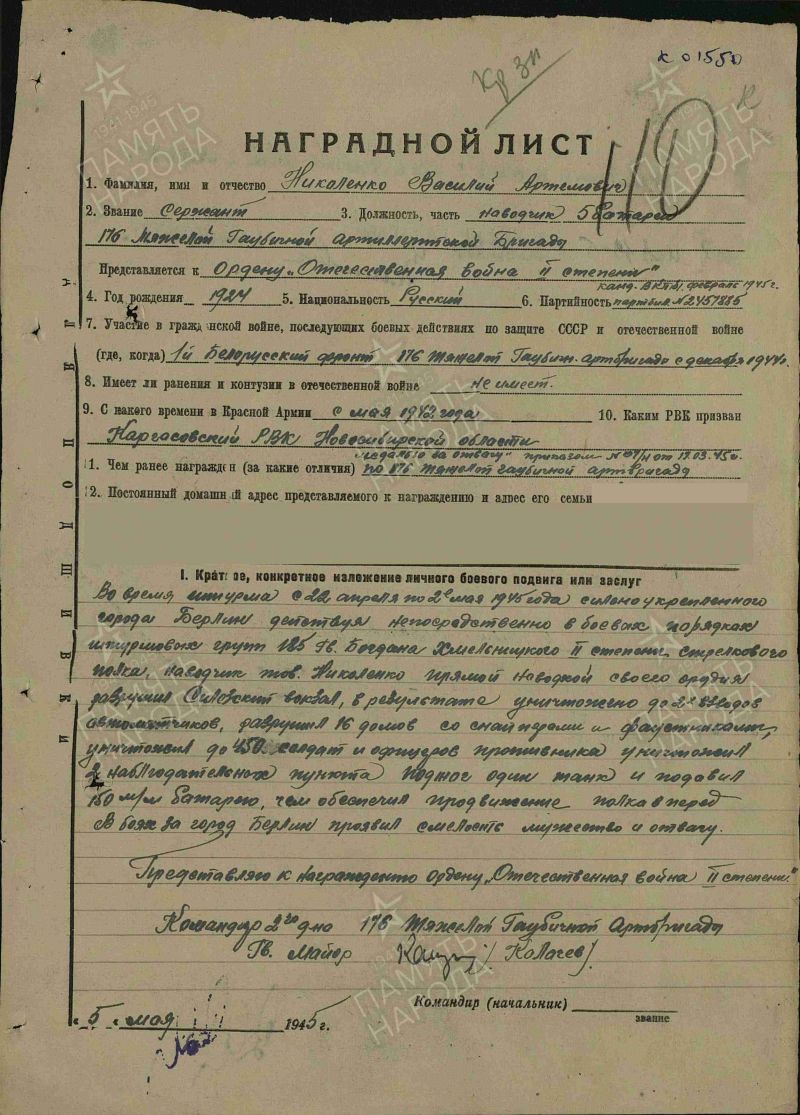 к 01550
Кр Зн
110
НАГРАДНОЙ ЛИСТ
1. Фамилия, имя и отчество Николенко Василий Артемович
2. Звание Сержант 3. Должность, часть наводчик 5 батареи
176 Тяжелой Гаубичной артиллерийской Бригады
Представляется к Ордену „Отечественная война II степени"
канд. ВКП(б) февраль 1945 г.
4. Год рождения 1924 5. Национальность Русский 6. Партийность партбил N 2457885
7. Участие в гражданской войне, последующих боевых действиях по защите СССР и отечественной войне
(где, когда) 1й Белорусский фронт 176 Тяжелой Гаубичн. артбригада с декабря 1944 г.
8. Имеет ли ранения и контузии в отечественной войне не имеет.
9. С какого времени в Красной Армии с мая 1942 года 10. Каким РВК призван
Каргасовский РВК Новосибирской области
медалью за отвагу" приказом от 17.03.45г.
11. Чем ранее награжден (за какие отличия) по 176 Тяжелой гаубичной артбригада
12. Постоянный домашний адрес представляемого к награждению и адрес его семьи
I. Краткое, конкретное изложение личного боевого подвига или заслуг
Во время штурма с 22 апреля по 2е мая 1945 года сильно укрепленного
города Берлин действуя непосредственно в боевых порядках
штурмовых групп 185 Гв. Богдана Хмельницкого II степени стрелкового
полка, наводчик тов. Николенко прямой наводкой своего орудия
разрушил Силезский вокзал, в результате уничтожено до 2х взводов
автоматчиков, разрушил 16 домов со снайперами и фаустниками,
уничтожил до 450 солдат и офицеров противника уничтожил
2 наблюдательных пункта поджог один танк и подавил
150 м/м батарею, чем обеспечил продвижение полка вперед
В боях за город Берлин проявил смелость мужество и отвагу.
Представляю к награждению ордену „Отечественная война II степени"
Командир 2го д-на 176 Тяжелой Гаубичной Артбригады
Гв. Майор /Колачев/
Командир (начальник)
звание
„5" мая 1945 г.
ДЛЯ ПОДШИВКИ
1941-1945
ПАМЯТЬ
НАРОДА